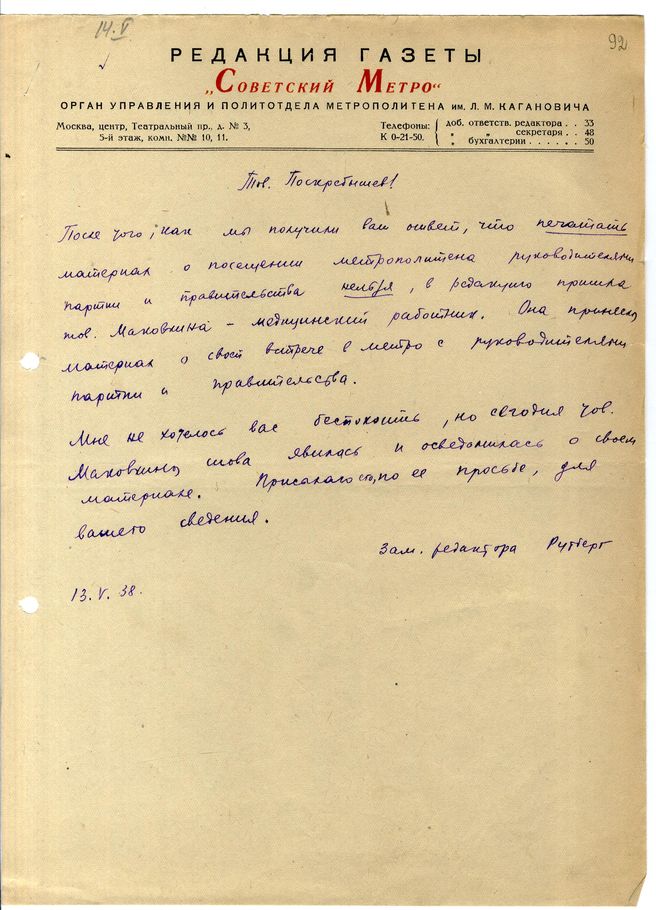 14.V
92
РЕДАКЦИЯ ГАЗЕТЫ
„Советский Метро“
ОРГАН УПРАВЛЕНИЯ И ПОЛИТОТДЕЛА МЕТРОПОЛИТЕНА им. Л. М. КАГАНОВИЧА
Москва, центр, Театральный пр., д. № 3,
5-й этаж, комн. №№ 10, 11.
Телефоны:
К 0-21-50.
доб. ответств. редактора . . 33
„ „ секретаря . . 48
„ бухгалтерии . . . . . . 50
Тов. Поскребышев!
После того, как мы получили ваш ответ, что печатать
материал о посещении метрополитена руководителями
партии и правительства нельзя, в редакцию пришла
тов. Маховкина – медицинский работник. Она принесла
материал о своей встрече в метро с руководителями
партии и правительства.
Мне не хотелось вас беспокоить, но сегодня тов.
Маховкина снова явилась и осведомилась о своем
материале. Присылаю его, по ее просьбе, для
вашего сведения.
Зам. редактора Рутберг
13.V.38.